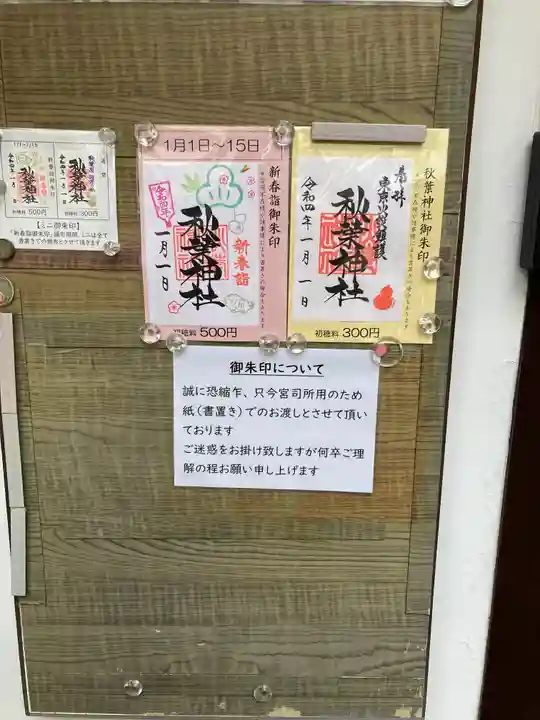 1月1日〜15日
新春詣御朱印
秋葉神社
新春詣
一月一日
初穂料 500円
秋葉神社御朱印
秋葉神社
令和四年一月一日
初穂料 300円
秋葉神社
初穂料 500円
秋葉神社
初穂料 300円
【ミニ御朱印】
御朱印について
誠に恐縮乍、只今宮司所用のため
紙(書置き)でのお渡しとさせて頂い
ております
ご迷惑をお掛け致しますが何卒ご理
解の程お願い申し上げます